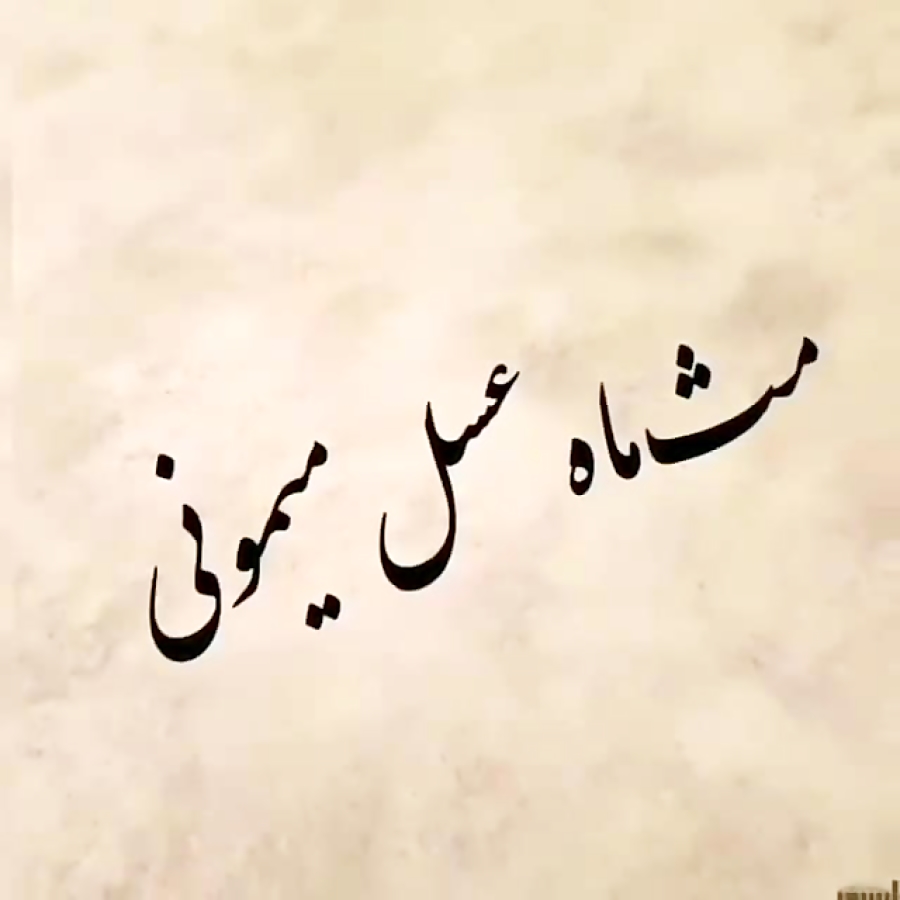 مث ماه عسل میمونی